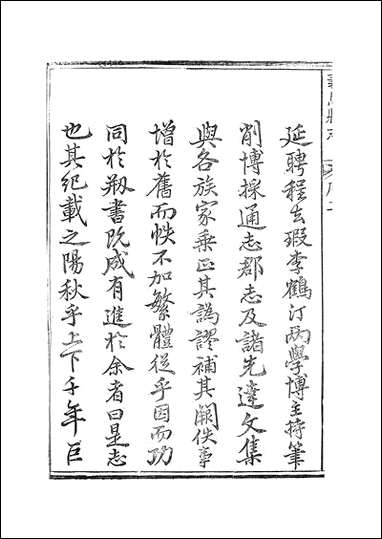 延聘程玄瑕李鶴汀兩學博主持筆
削博採通志郡志及諸先達文集
與各族家乘正其譌謬補其闕佚事
增於舊而帙不加繁體從乎因而功
同於剏書既成有進於余者曰是志
也其紀載之陽秋乎上下千年巨